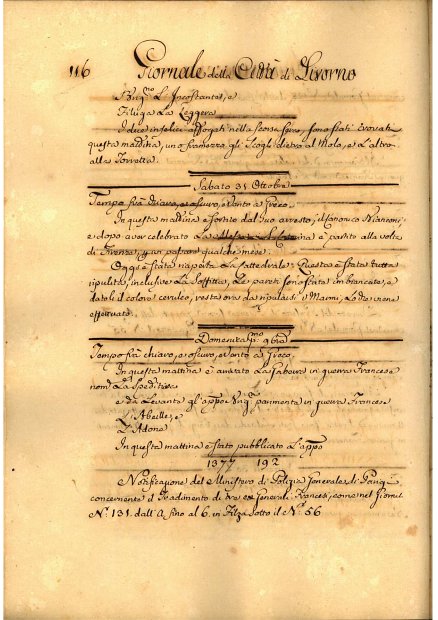 116 Giornale della Città di Livorno
Brig.no L'Incostante, e
Filuga La Leggera
I due infelici affogati nella scorsa sera, sono stati trovati
questa mattina, uno framezzo gli Scogli dietro al Molo, e L'altro
alla Torretta.
Sabato 31 Ottobre
Tempo frà chiaro, e oscuro, e Vento a Greco.
In questa mattina è sortito dal suo arresto, il Canonico
e dopo aver celebrato La è partito alla volta
di Firenze, p un passare qualche mese.
Oggi è stata riaperta La Cattedrale: Questa è stata tutta
ripulita, inclusive La Soffitta; Le pareti son state imbiancate, e
datoli il colore ceruleo, resta ora da ripulirsi i Marmi, Lo che viene
effettuato.
Domenica p.mo 9bre
Tempo frà chiaro, e oscuro, e Vento a Greco.
In questa mattina è arrivato La Gabarra in guerra Francese
nom.ta La
e da Levante gl'appo Brig.ni parimente in guerra Francese
L'Abeille, e
L'Adone
In questa mattina è stato pubblicato L'appo
1377 192
Notificazione del Ministero di Polizia Generale, di Parigi
concernente il Tradimento di tre ex Generali Francesi, come nel Giornle
N.o 131. dall'A fino al 6. in Filza sotto il N.o 56